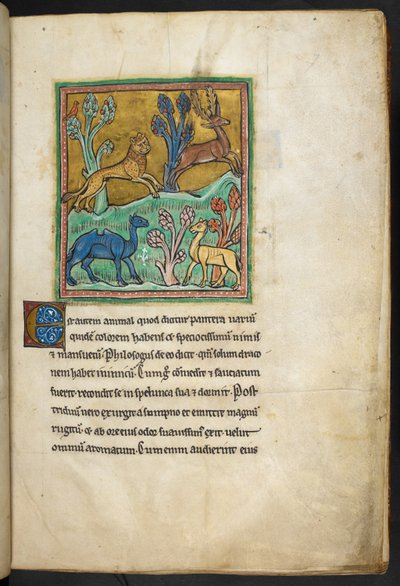 Est autem animal quod dicitur pantera variu
quidē colorem habens & speciosissimū nimis
& mansuetū. Phisiologus de eo dicit. qm̄ solum draco
nem habet inimicū. Cumq; comederit & saciatum
fuerit. recondit se in spelunca sua & dormit. Post
triduum vero exurgit a sompno et emittit magnū
rugitū. & ab ore eius odor suavissim9 exit. velut
omniū aromatum. Cum enim audierint eius